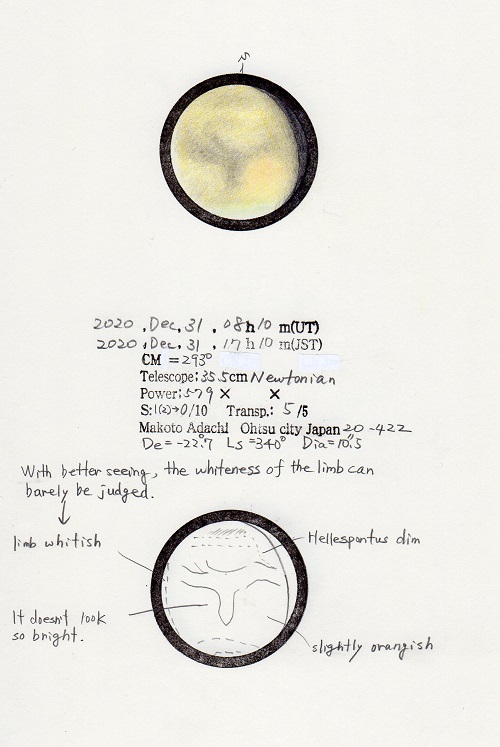 S
2020 , Dec, 31 , 08 h 10 m(UT)
2020 , Dec, 31 , 17 h 10 m(JST)
CM = 293°
Telescope: 35.5cm Newtonian
Power: 579 × ×
S: 1(2)→0/10 Transp.: 5 /5
Makoto Adachi Ohtsu city Japan 20-422
De= -22.°7 Ls =340° Dia=10.″5
With better seeing, the whiteness of the limb can
barely be judged.
limb whitish
Hellespontus dim
It doesn't look
so bright.
slightly orangish